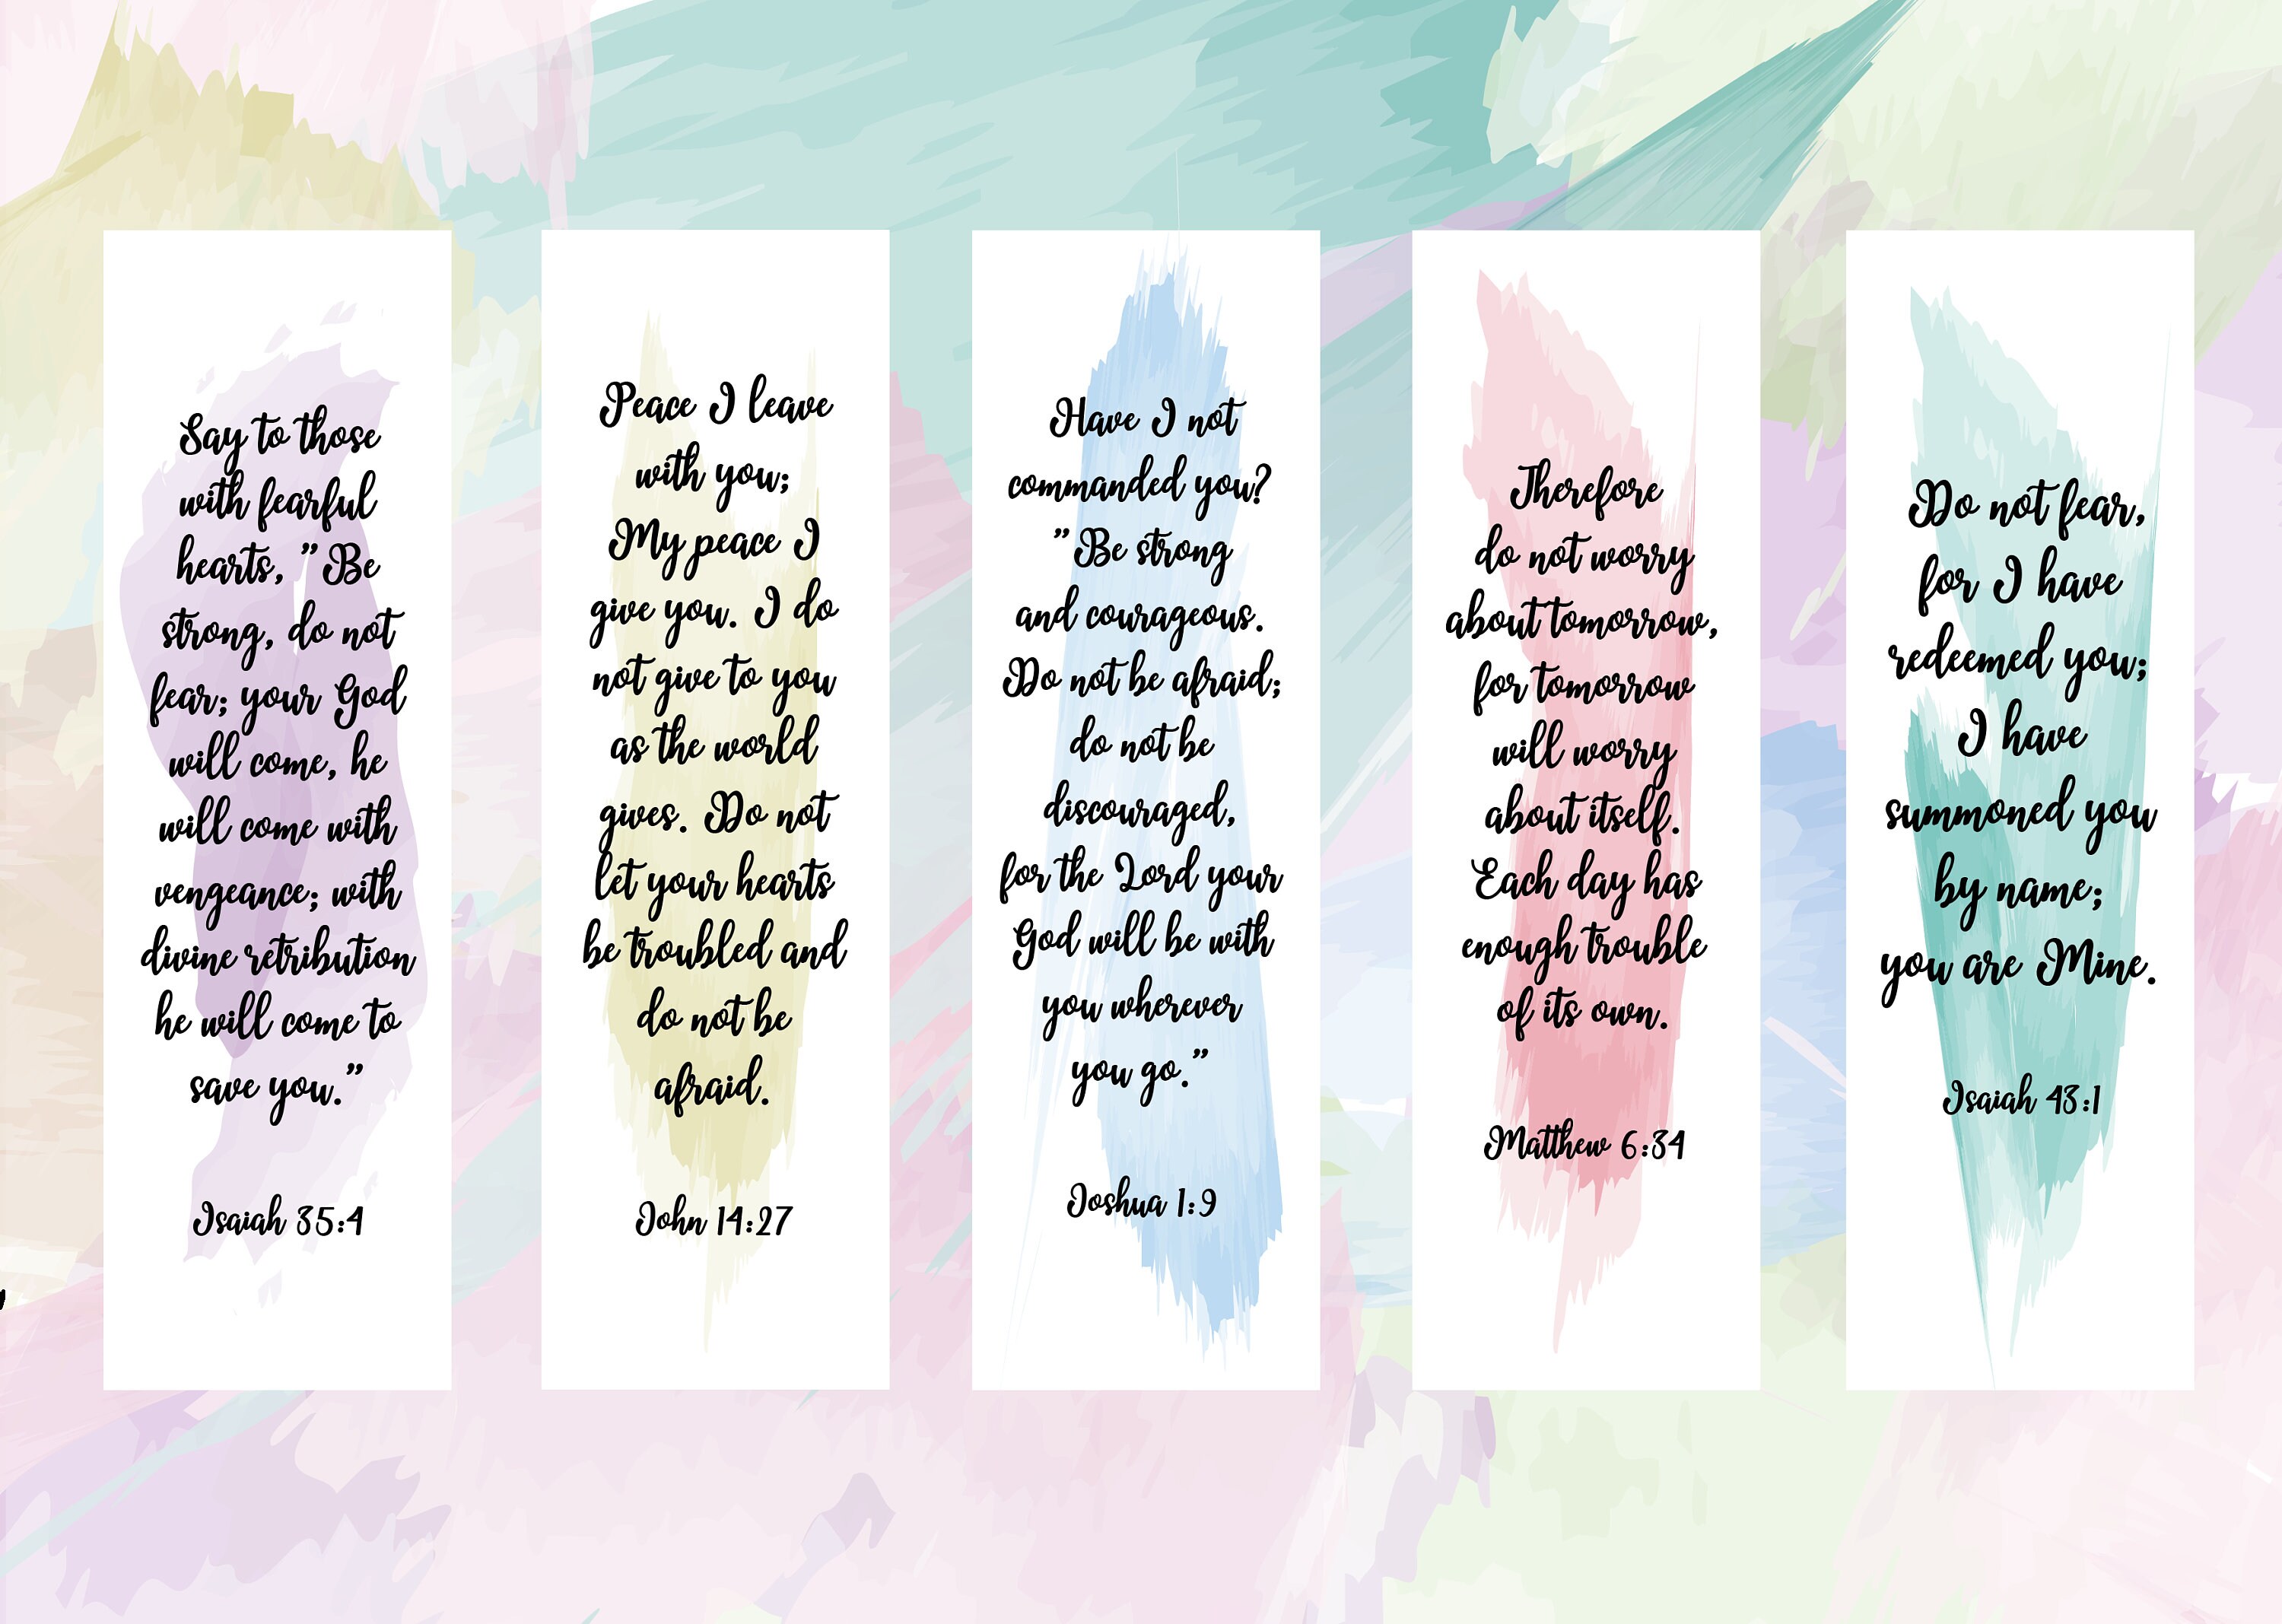 Say to those
with fearful
hearts, ”Be
strong, do not
fear; your God
will come, he
will come with
vengeance; with
divine retribution
he will come to
save you.”
Isaiah 35:4
Peace I leave
with you;
My peace I
give you. I do
not give to you
as the world
gives. Do not
let your hearts
be troubled and
do not be
afraid.
John 14:27
Have I not
commanded you?
”Be strong
and courageous.
Do not be afraid;
do not be
discouraged,
for the Lord your
God will be with
you wherever
you go.”
Joshua 1:9
Therefore
do not worry
about tomorrow,
for tomorrow
will worry
about itself.
Each day has
enough trouble
of its own.
Matthew 6:34
Do not fear,
for I have
redeemed you;
I have
summoned you
by name;
you are Mine.
Isaiah 43:1